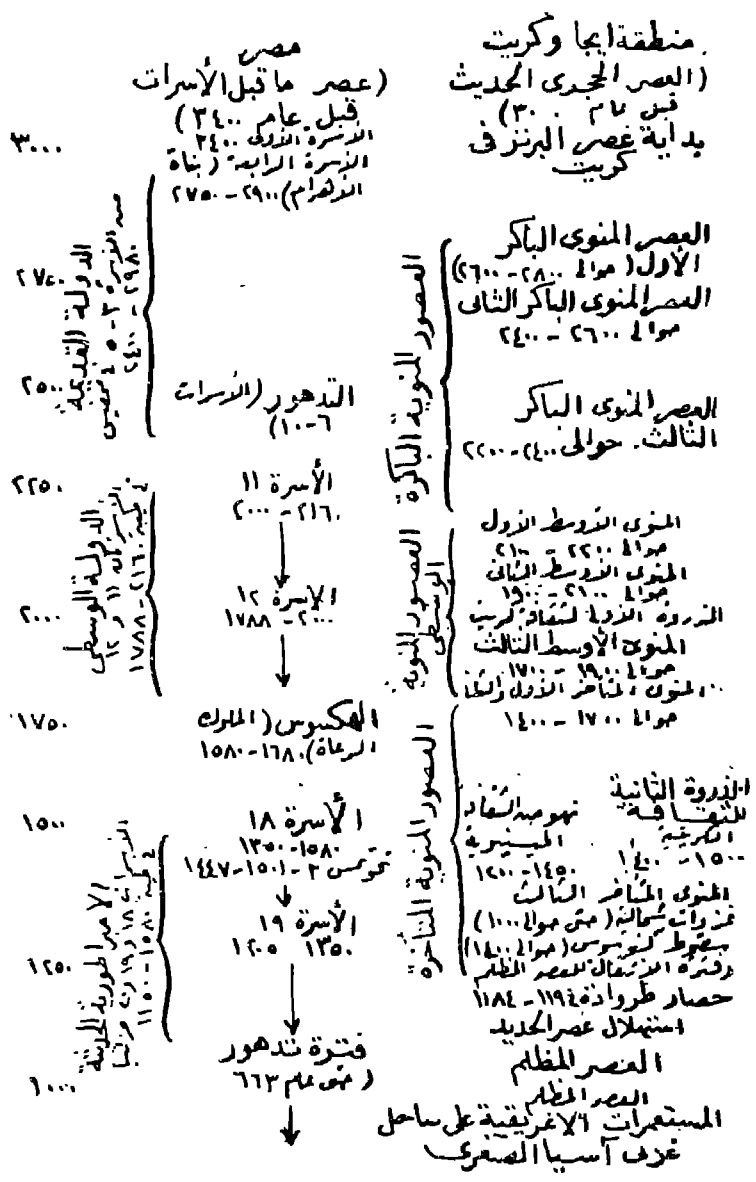 منطقة ايجا وكريت
(العصر الحجرى الحديث
قبل عام ٣٠٠)
بداية عصر البرنز فى
كريت
العصر المنوى الباكر
الأول (حوالى ٢٨٠٠-٢٦٠٠)
العصر المنوى الباكر الثانى
حوالى ٢٦٠٠-٢٤٠٠
العصر المنوى الباكر
الثالث. حوالى ٢٤٠٠-٢٢٠٠
العصور المنوية الباكرة
المنوى الأوسط الأول
حوالى ٢٢٠٠-٢١٠٠
المنوى الأوسط الثانى
حوالى ٢١٠٠-١٩٠٠
الذروة الأولى لثقافة كريت
المنوى الأوسط الثالث
حوالى ١٩٠٠-١٧٠٠
العصور المنوية
الوسطى
المنوى المتأخر الأول والثانى
حوالى ١٧٠٠-١٤٠٠
الذروة الثانية
للثقافة
الكريتية
١٥٠٠-١٤٠٠
نهوض الثقافة
الميسينية
١٤٥٠-١٢٠٠
المنوى المتأخر الثالث
غزوات شمالية (حتى حوالى ١٠٠٠)
سقوط كنوسوس (حوالى ١٤٠٠)
وفترة الانتقال للعصر المظلم
حصار طروادة ١١٩٤-١١٨٤
استهلال عصر الحديد
العصور المنوية المتأخرة
العصر المظلم
العصر المظلم
المستعمرات الاغريقية على ساحل
غربى آسيا الصغرى
مصر
(عصر ما قبل الأسرات
قبل عام ٣٤٠٠)
الأسرة الأولى ٣٤٠٠
الأسرة الرابعة (بناة
الأهرام) ٢٩٠٠-٢٧٥٠
التدهور (الأسرات
٦-١٠)
الأسرة ١١
٢١٦٠-٢٠٠٠
الأسرة ١٢
٢٠٠٠-١٧٨٨
الهكسوس (الملوك
الرعاة) ١٦٨٠-١٥٨٠
الأسرة ١٨
١٥٨٠-١٣٥٠
تحوتمس ٣-١٥٠١-١٤٤٧
الأسرة ١٩
١٣٥٠ ١٢٠٥
فترة تدهور
(حتى عام ٦٦٣
الدولة القديمة
من الأسرة ٣-٥ فى ممفيس
٢٩٨٠-٢٤٠٠
الدولة الوسطى
فى طيبة
الأسرتان ١١ و ١٢
٢١٦٠-١٧٨٨
الامبراطورية الحديثة
الأسرات ١٨ و ١٩ و ٢٠
فى طيبة ١٥٨٠-١١٥٠
٣٠٠٠
٢٧٥٠
٢٥٠٠
٢٢٥٠
٢٠٠٠
١٧٥٠
١٥٠٠
١٢٥٠
١٠٠٠